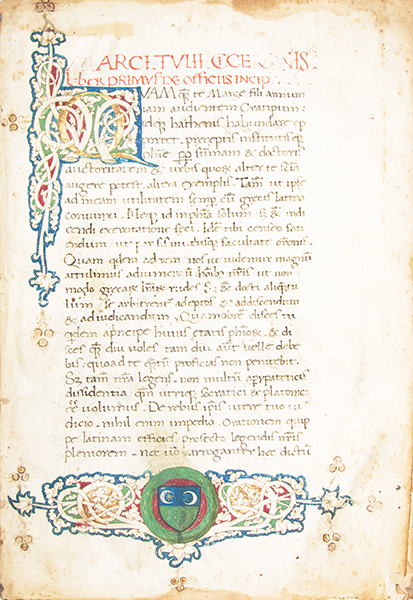 MARCI.TVLII.CICERONIS
Liber primus de officiis incip
QUAM q̄ te Marce fili annum
iam audientem Cratippum:
idq; Athenis, habundare op
ortet, preceptis institutisq;
phīe ꝓp sūmam & doctoris
auctoritatem & urbis quorr alter te scīa
augere potest, altera exemplis. Tam̄ ut ipse
ad meam utilitatem semper cū grecis latina
coniunxi. Neq; id in phīa solum sʒ & in di
cendi exercitatione feci. Idem tibi censeo faci
endum ut par sis in utriusq; facultate orōnis.
Quam qdem ad rem nos ut uidemur magnū
attulimus adiumentū hoībȝ nr̄is ut non
modo grecarr lr̄arr rudes sȝ & docti aliqtū
se arbitrentr adeptos & ad discendum
& ad iudicandum. Quamobrem disces tu
qdem a principe huius etatis phōrr & di
sces q̄diu uoles tam diu aūt uelle debe
bis, quoad te qtū proficias non penitebit.
Sȝ tam̄ nr̄a legens, non multū a perypateticis
dissidentia qm̄ utriq; socratici & platonic
e uolumus. De rebus ipīs utere tuo iu
dicio, nihil enim impedio. Orationem quip
pe latinam efficies profecto legendis nr̄is
pleniorem. Nec uo arroganter hoc dictū